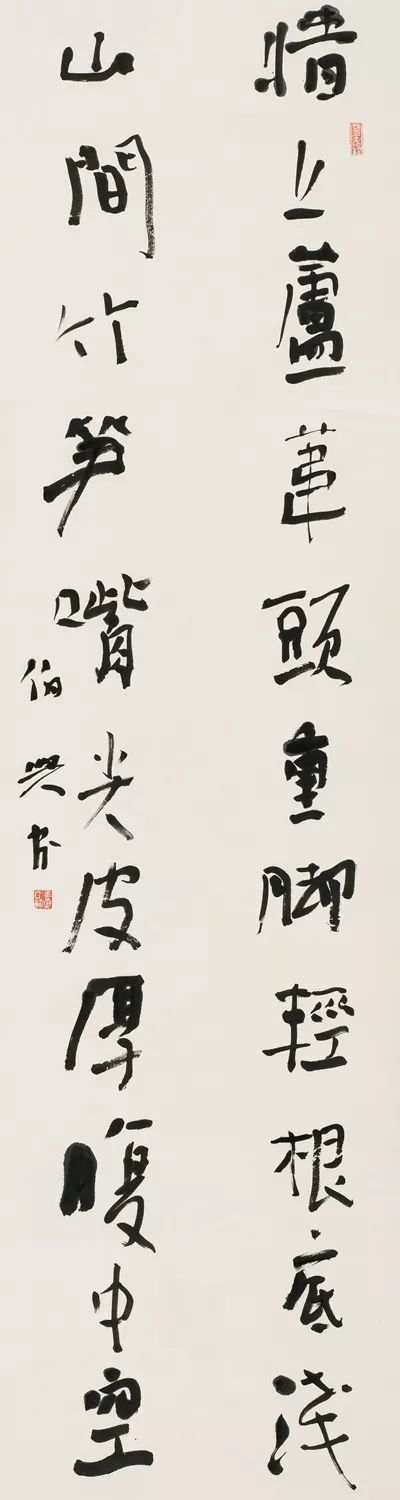 墙上蘆葦頭重脚輕根底淺
山間竹笋嘴尖皮厚腹中空
伯兴书